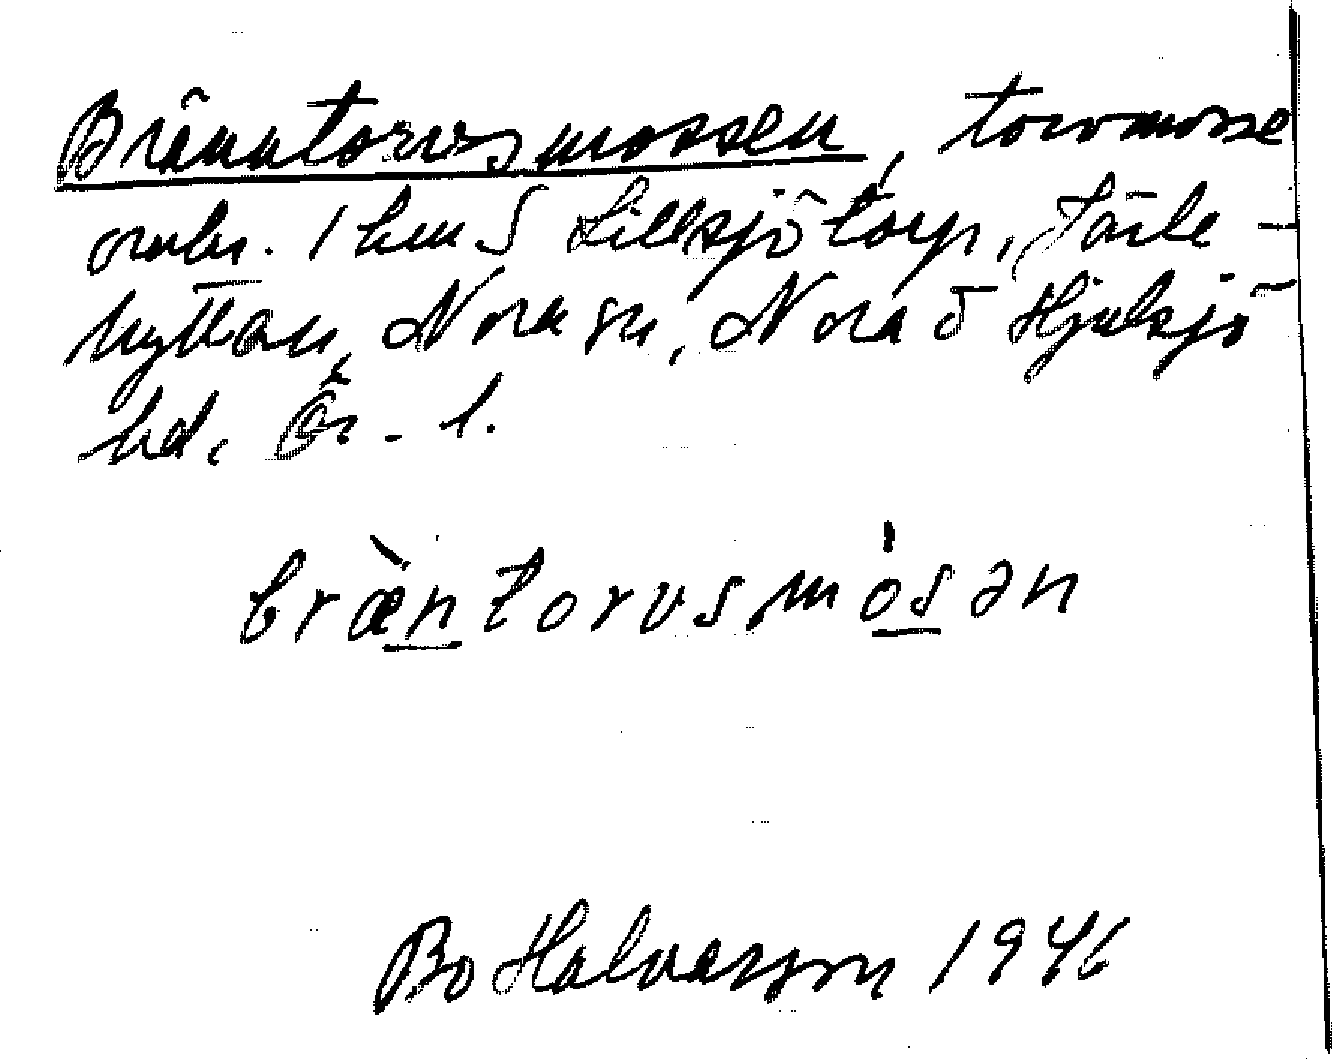 Bränntorvsmossen, torvmosse
omkr. 1 km S Lillsjötorp, Järle-
hyttan, Nora sn, Nora o Hjulsjö
hd. Ör. l.
bræ̀ntorvsmósən
Bo Halvarson 1946